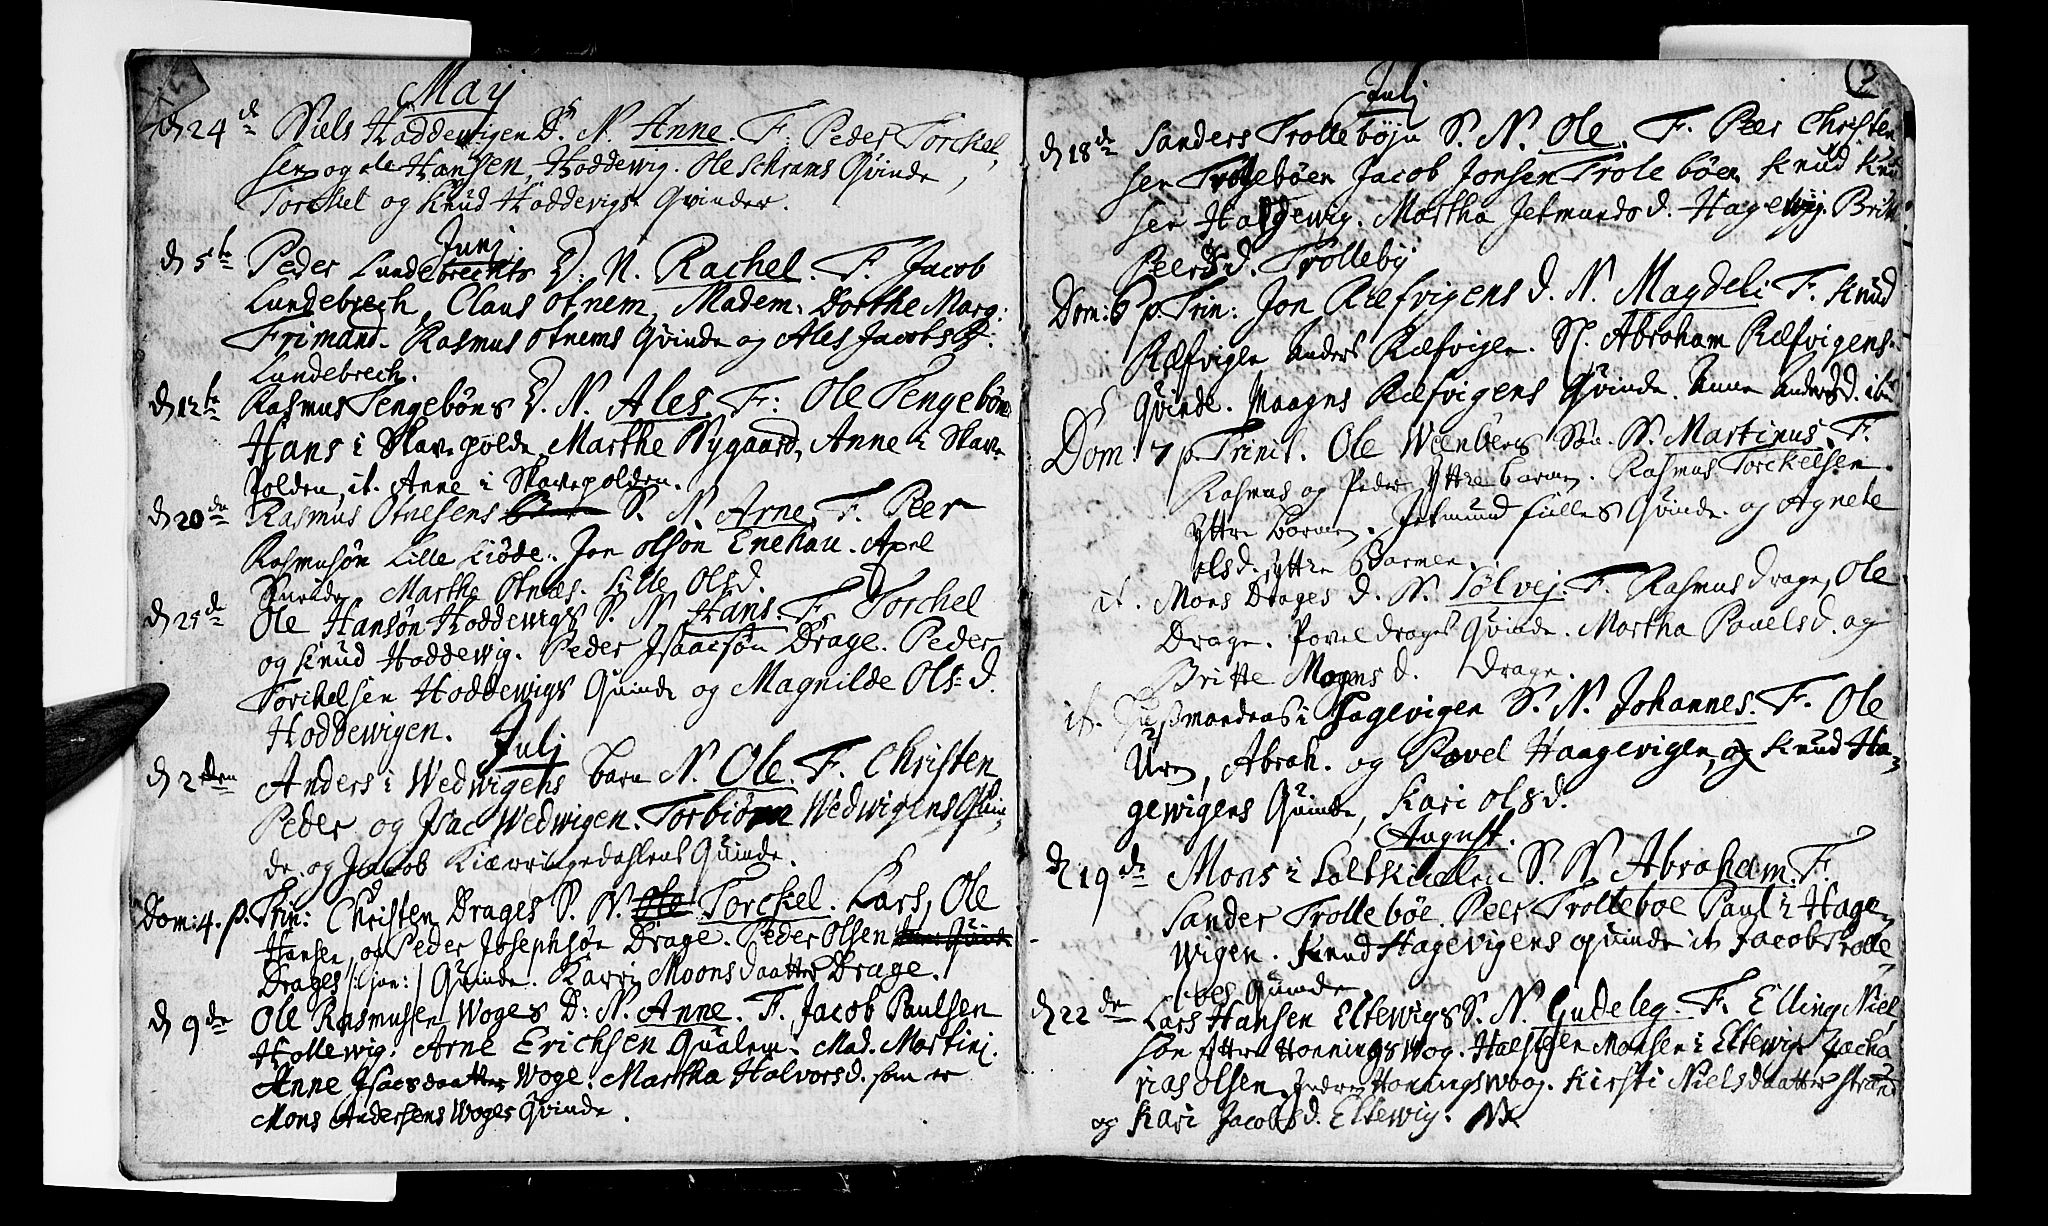 May
d 24de Niels Hoddewigens D. N. Anne. F. Peder Torckel-
sen og ole Hansen, Hoddewig. Ole Schrams Qvinde,
Torckel og Knud Hoddevigs Qvinder.
Junj.
d 5te Peder Lundebrechts D. N. Rachel. F. Jacob
Lundebrech, Claus Otnem, Madem. Dorthe Marg:
Frimand. Rasmus Otnems Qvinde og Ales Jacobs D.
Lundebrech.
d 12te Rasmus Tengebøns D. N. Ales F: Ole Tengebøn
Hans i Skavepolde, Marthe Nygaard, Anne i Skave
polden, it. Anne i Skavepolden.
d 20de Rasmus Otnesens S. N. Arne, F. Peer
Rasmusøn Lille Liøde. Jon olsøn Enehau. Apel
Marthe Otnæs. Lille Olsd.
d 25de Ole Hansøn Hoddewigs S. N. Hans. F. Torchel
og Knud Hoddewig. Peder Isaacsøn Drage. Peder
Torchelsen Hoddewigs Quinde og Magnilde Ols: D.
Hoddewigen.
Julj
d 2den Anders i Wedwigens barn N. Ole. F. Christen
Peder og Isac Wedwigen. Torbiørn Wedwigens Quin
de. og Jacob Kiærringedahlens Quinde.
Dom: 4. p. Trin: Christen Drages S. N. Ole Torckel. Lars, Ole
Hansen, og Peder Josephsøn Drage. Peder Olsen Quinde
Drages Quinde. Karri Moons daatter Drage.
d 9de Ole Rasmussen Woges D: N. Anne. F. Jacob Paulsen
Hollewig. Arne Erichsen Qualem. Mad. Martinj.
Anne Isacsdaatter Woge. Martha Halvorsd. som er
Mons Andersens Woges Qvinde.
Julj
d 18de Sanders Trollebøjn S. N. Ole. F. Peer Christen
sen Trollebøen Jacob Jonsen Trolebøen Knud Knud
sen Haddewig. Martha Jetmundsd. Hagewig. Britt
Peersd. Trølleby
Dom: 6 p. Trin: Jon Ræfvigens D. N. Magdeli F. Knud
Ræfvigen Anders Ræfvigen. Sl. Abraham Ræfvigens
Qvinde. Maagns Ræfvigens Qvinde. Anne Andersd. ibid
Dom: 7 p. Trinit. Ole Weenbergs Søn. N. Martinus. F.
Rasmus og Peder Yttre barmen. Rasmus Torckelsen.
Yttre Barmen. Jetmund fülles Qvinde. og Agnete
olsd. yttre Barmen.
it. Mons Drages D. N. Sølvej. F. Rasmus drage, Ole
Drage. Povel drages Qvinde. Martha Pouelsd. og
Britte Mogensd. Drage.
it. Husmandens i Hagevigen S. N. Johannes. F. Ole
Urn, Abrah. og Povel Haagevigen, og Knud Ha-
gewigens Quinde, Kari olsd.
August.
d 19de Mons i Søltskieelen S. N. Abraham. F.
Sander Trollebøe Peer Trolleboe Paul i Hage-
wigen. Knud Hagevigens quinde it Jacob Trolle-
boes Quinde.
d 22de Lars Hansen Eltewigs S. N. Gudeleg. F. Elling Niel
søn yttre Honningswog. Halsteen Monsen i Eltewig Zacha
rias olsen Indre Honningswoog. Kirsti Nielsdaatter strand
og Kari Jacobsd. Eltewig.